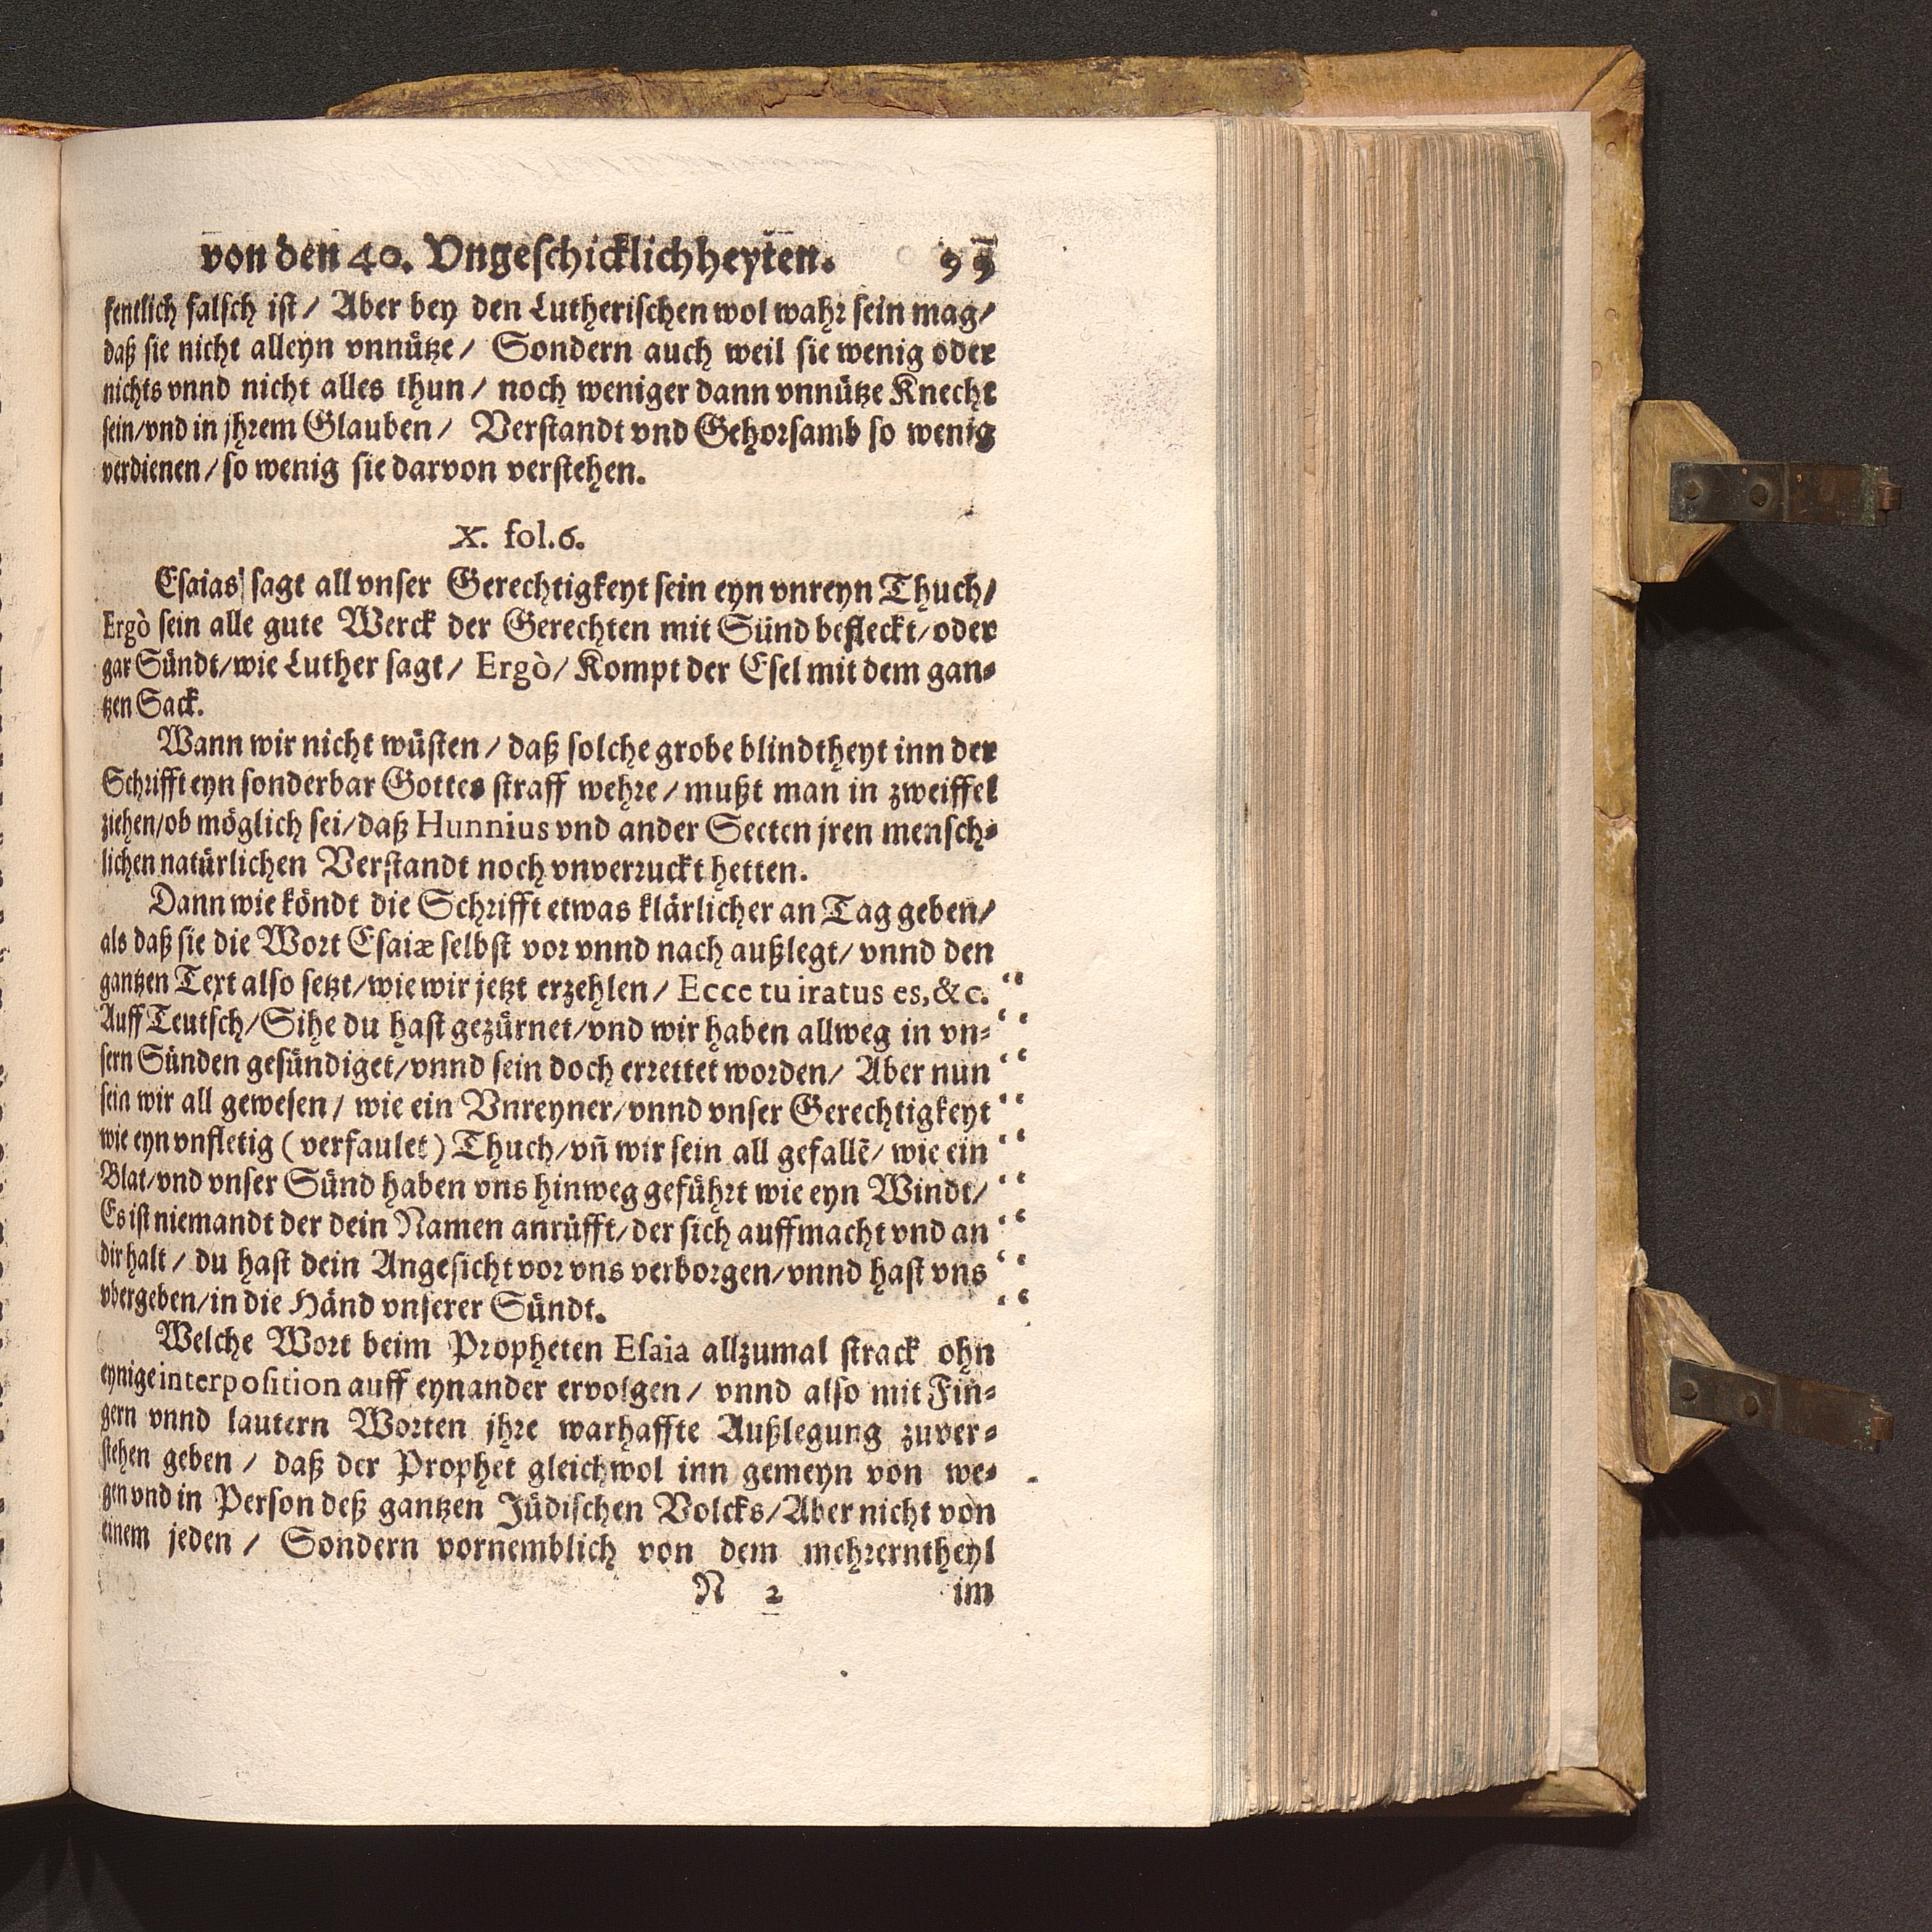 von den 40. Vngeschicklichheyten. 99
fentlich falsch ist/ Aber bey den Lutherischen wol wahr sein mag/
daß sie nicht alleyn vnnütze/ Sondern auch weil sie wenig oder
nichts vnnd nicht alles thun/ noch weniger dann vnnütze Knecht
sein/vnd in jhrem Glauben/ Verstandt vnd Gehorsamb so wenig
verdienen/so wenig sie darvon verstehen.
X. fol.6.
Esaias sagt all vnser Gerechtigkeyt sein eyn vnreyn Thuch/
Ergò sein alle gute Werck der Gerechten mit Sünd befleckt/oder
gar Sündt/wie Luther sagt/ Ergò/ Kompt der Esel mit dem gan⸗
tzen Sack.
Wann wir nicht wüsten/ daß solche grobe blindtheyt inn der
Schrifft eyn sonderbar Gottes straff wehre/mußt man in zweiffel
ziehen/ob möglich sei/daß Hunnius vnd ander Secten jren mensch⸗
lichen natürlichen Verstandt noch vnverruckt hetten.
Dann wie köndt die Schrifft etwas klärlicher an Tag geben/
als daß sie die Wort Esaiæ selbst vor vnnd nach außlegt/ vnnd den
gantzen Text also setzt/wie wir jetzt erzehlen/ Ecce tu iratus es,&c. “
Auff Teutsch/Sihe du hast gezürnet/vnd wir haben allweg in vn⸗ “
sern Sünden gesündiget/vnnd sein doch errettet worden/ Aber nun “
sein wir all gewesen/ wie ein Vnreyner/vnnd vnser Gerechtigkeyt “
wie eyn vnfletig (verfaulet) Thuch/vn̄ wir sein all gefallē/ wie ein “
Blat/vnd vnser Sünd haben vns hinweg geführt wie eyn Windt/ “
Es ist niemandt der dein Namen anrüfft/der sich auffmacht vnd an “
dir halt/ du hast dein Angesicht vor vns verborgen/vnnd hast vns “
vbergeben/in die Händ vnserer Sündt. “
Welche Wort beim Propheten Esaia allzumal strack ohn
eynige interposition auff eynander ervolgen/ vnnd also mit Fin⸗
gern vnnd lautern Worten jhre warhaffte Außlegung zuver⸗
stehen geben/ daß der Prophet gleichwol inn gemeyn von we⸗
gen vnd in Person deß gantzen Jüdischen Volcks/Aber nicht von
einem jeden/ Sondern vornemblich von dem mehrerntheyl
N 2 im